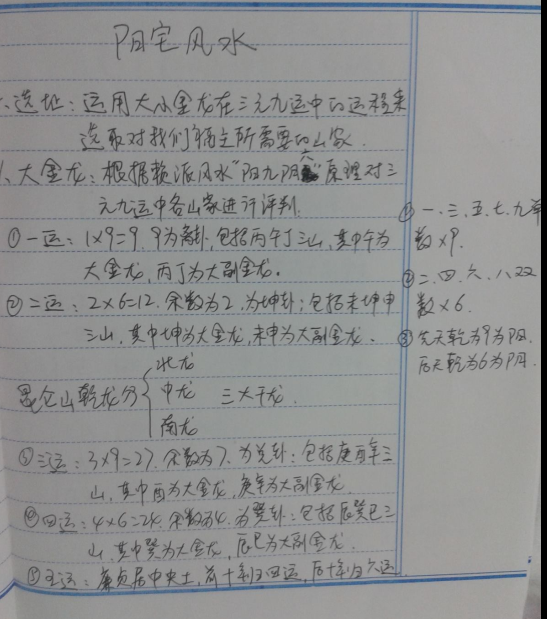 阳宅风水
、选址：运用大小金龙在三元九运中的运程来
选取对我们福主所需要的山家.
、大金龙：根据赖派风水“阳九阴六”原理对三
元九运中各山家进行评判.
①一运：1×9=9. 9为离卦,包括丙午丁三山,其中午为
大金龙,丙丁为大副金龙。
②二运：2×6=12. 余数为2.为坤卦；包括未坤申
三山,其中坤为大金龙,未申为大副金龙.
北龙
昆仑山乾龙分 中龙 三大干龙.
南龙
③三运：3×9=27. 余数为7.为兑卦；包括庚酉辛三
山,其中酉为大金龙,庚辛为大副金龙.
④四运：4×6=24. 余数为4.为巽卦：包括辰巽巳三
山.其中巽为大金龙,辰巳为大副金龙.
⑤五运：廉贞居中央土,前十年归四运,后十年归六运
①一.三.五.七.九单
数×9.
②二.四.六.八双
数×6.
③先天乾为9为阳.
后天乾为6为阴.